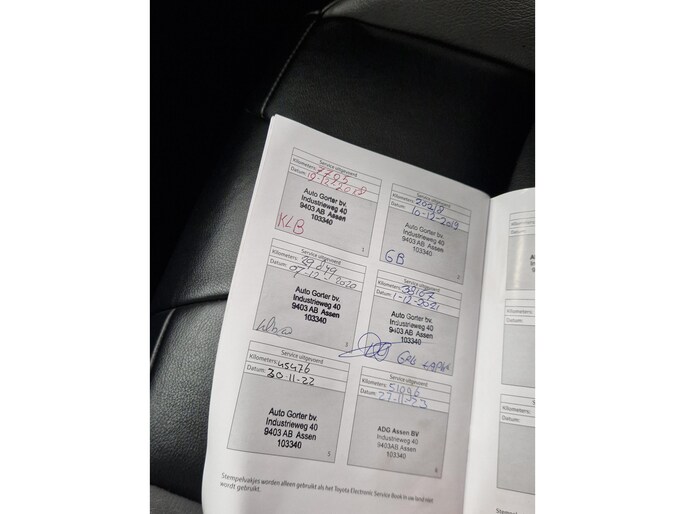 Service uitgevoerd
Kilometers: 7705
Datum: 19-12-2018
Auto Gorter bv.
Industrieweg 40
9403 AB Assen
103340
KLB
1
Service uitgevoerd
Kilometers: 20218
Datum: 10-12-2019
Auto Gorter bv.
Industrieweg 40
9403 AB Assen
103340
GB
2
Service uitgevoerd
Kilometers: 29849
Datum: 07-12-2020
Auto Gorter bv.
Industrieweg 40
9403 AB Assen
103340
3
Service uitgevoerd
Kilometers: 39167
Datum: 1-12-2021
Auto Gorter bv.
Industrieweg 40
9403 AB Assen
103340
Service uitgevoerd
Kilometers: 45476
Datum: 30-11-22
Auto Gorter bv.
Industrieweg 40
9403 AB Assen
103340
5
Service uitgevoerd
Kilometers: 51096
Datum: 27-11-23
ADG Assen BV
Industrieweg 40
9403AB Assen
103340
6
Stempelvakjes worden alleen gebruikt als het Toyota Electronic Service Book in uw land niet
wordt gebruikt.
Datum:
Kilometers:
Datum: